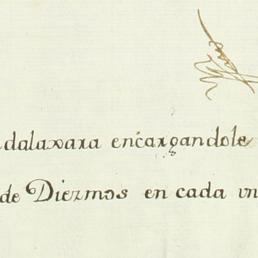 dalaxara encargandole
de Diezmos en cada un